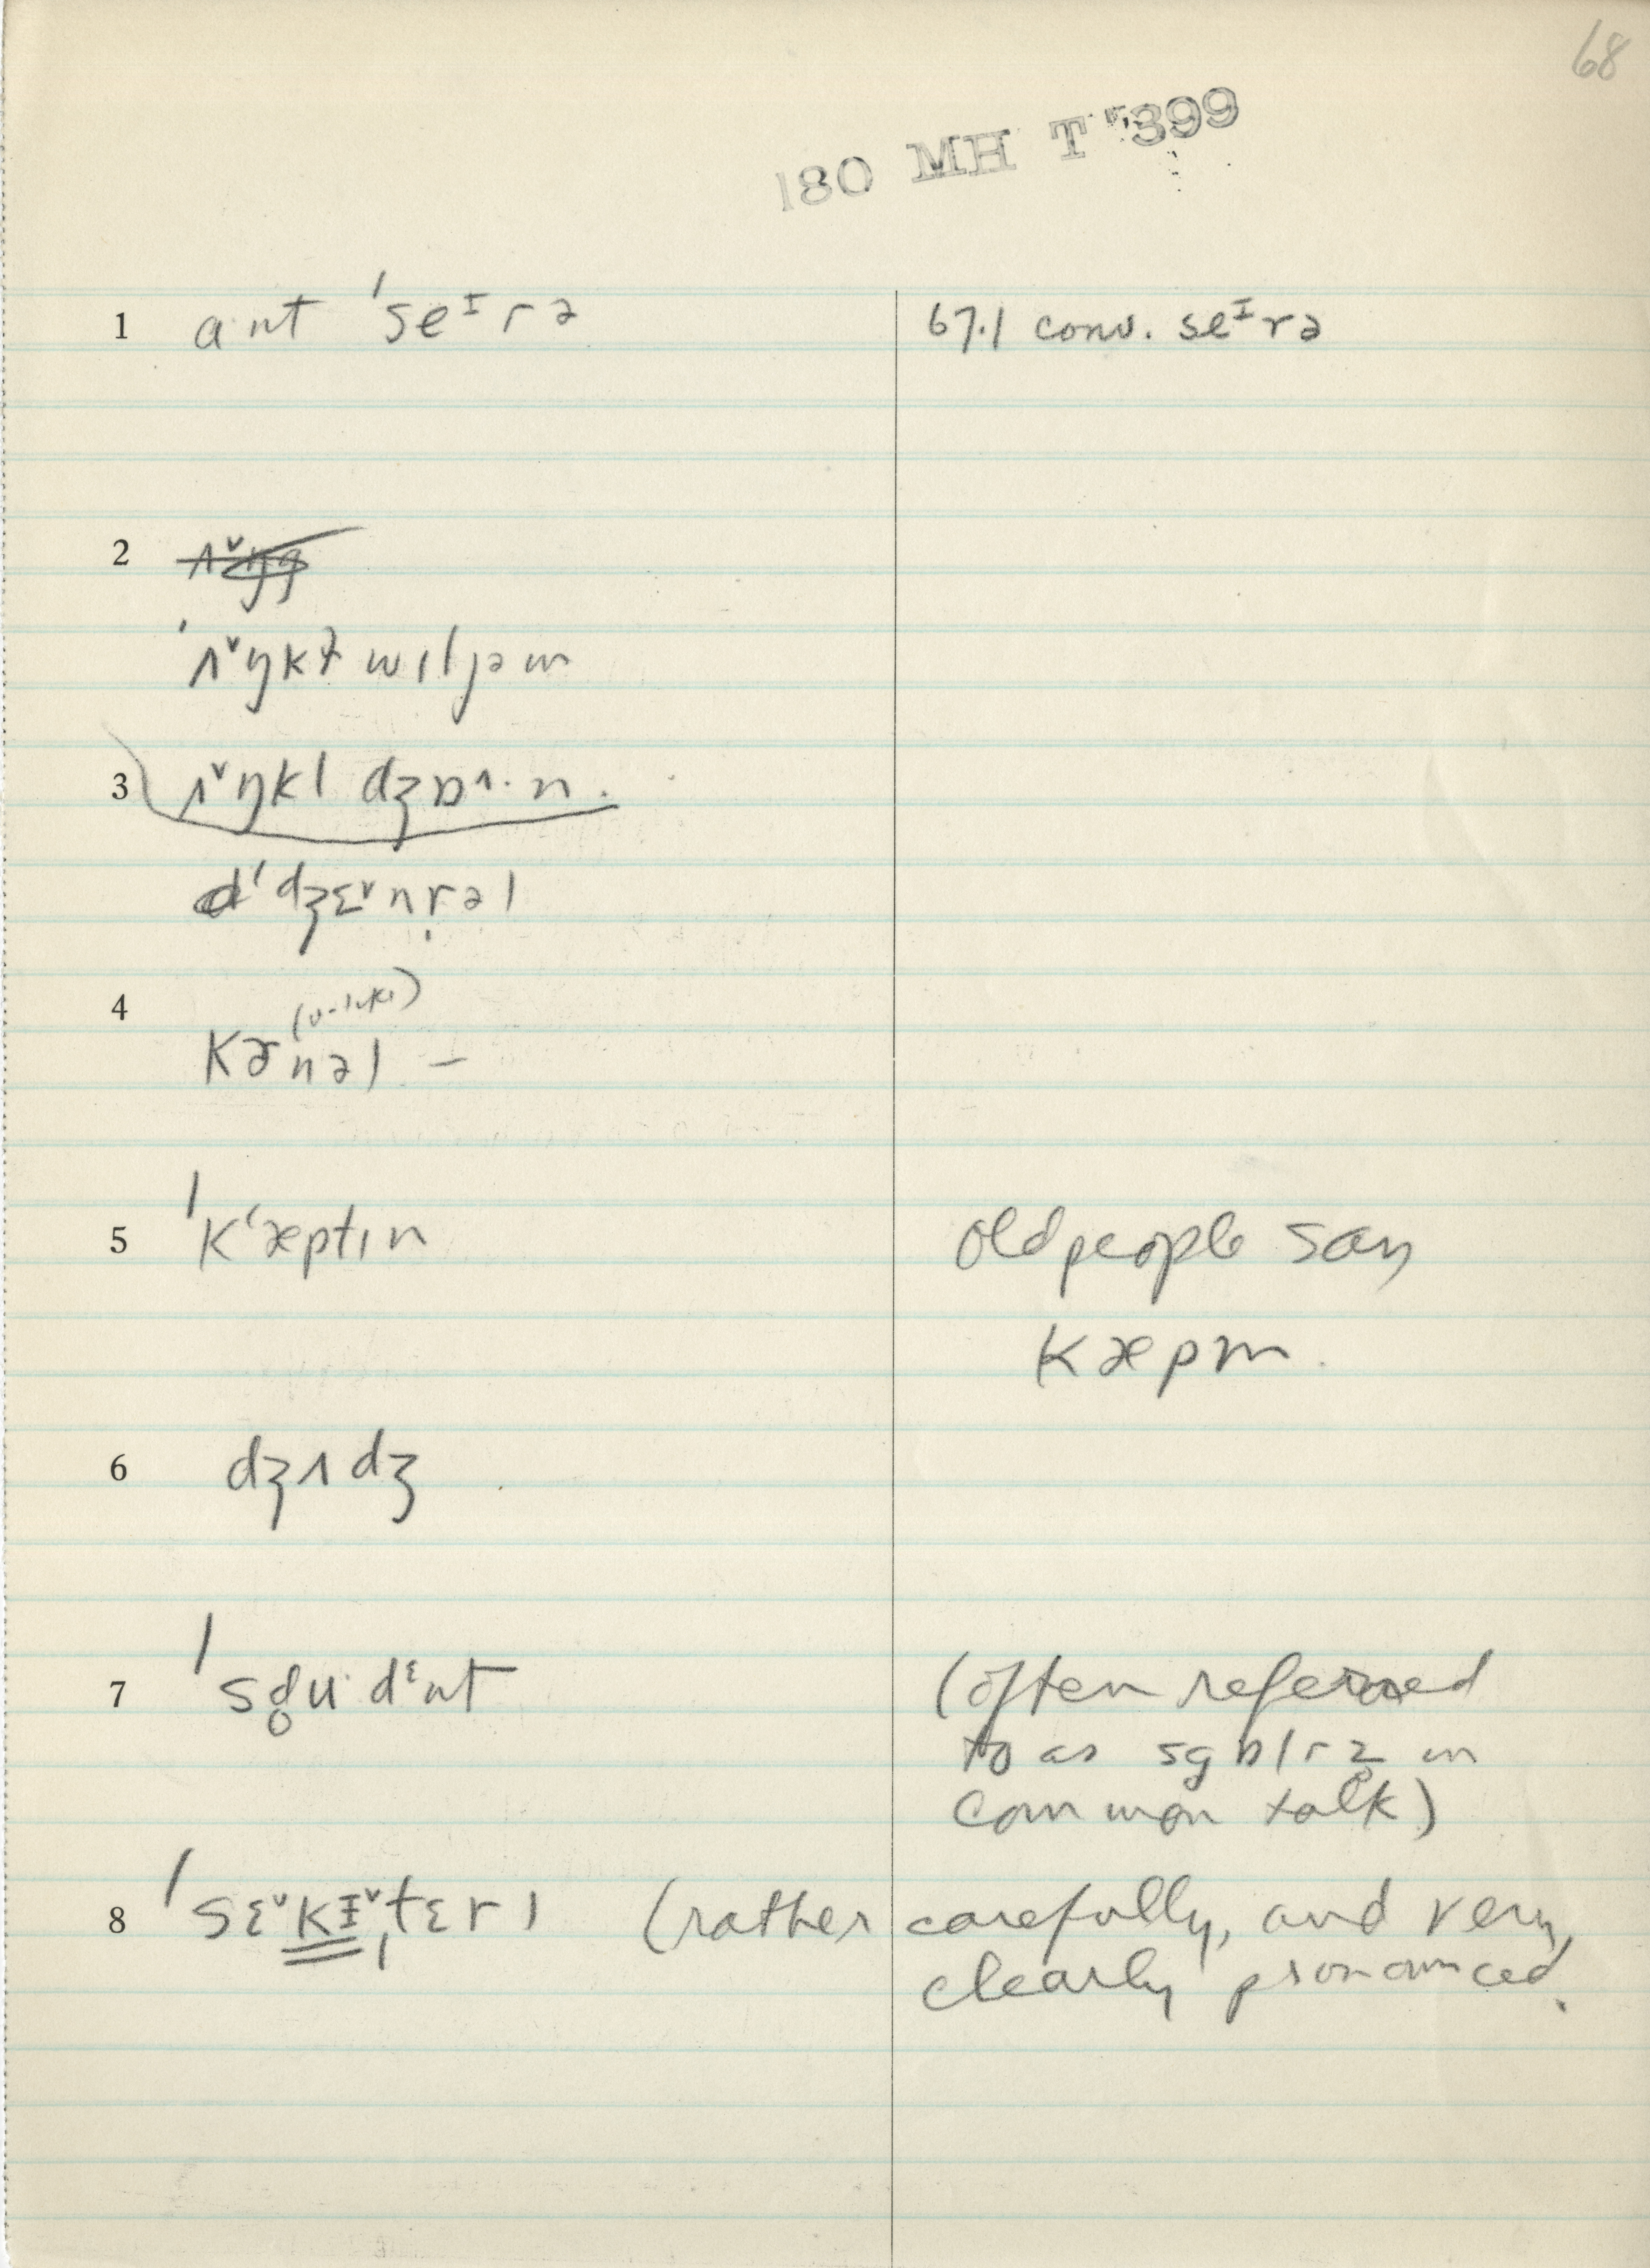 68
180 MH T 399
1 ant ˈseᶦrə 67.1 conv. seᶦrə
2
ˈʌ˅ŋkɫ wɪljəm
3 ʌ˅ŋkl dʒɒ^·n.
ˈdʒɛ˅nr̩əl
4
kɚnəl –
5 ˈkʻæptɪn old people say
kæpm.
6 dʒʌdʒ
7 ˈsd̥u·dᵋnt (often referred
to as sgɒlrz̥ in
common talk)
8 ˈsɛ˅kɪ˅ˌtɛrɪ (rather carefully, and very
clearly pronounced.